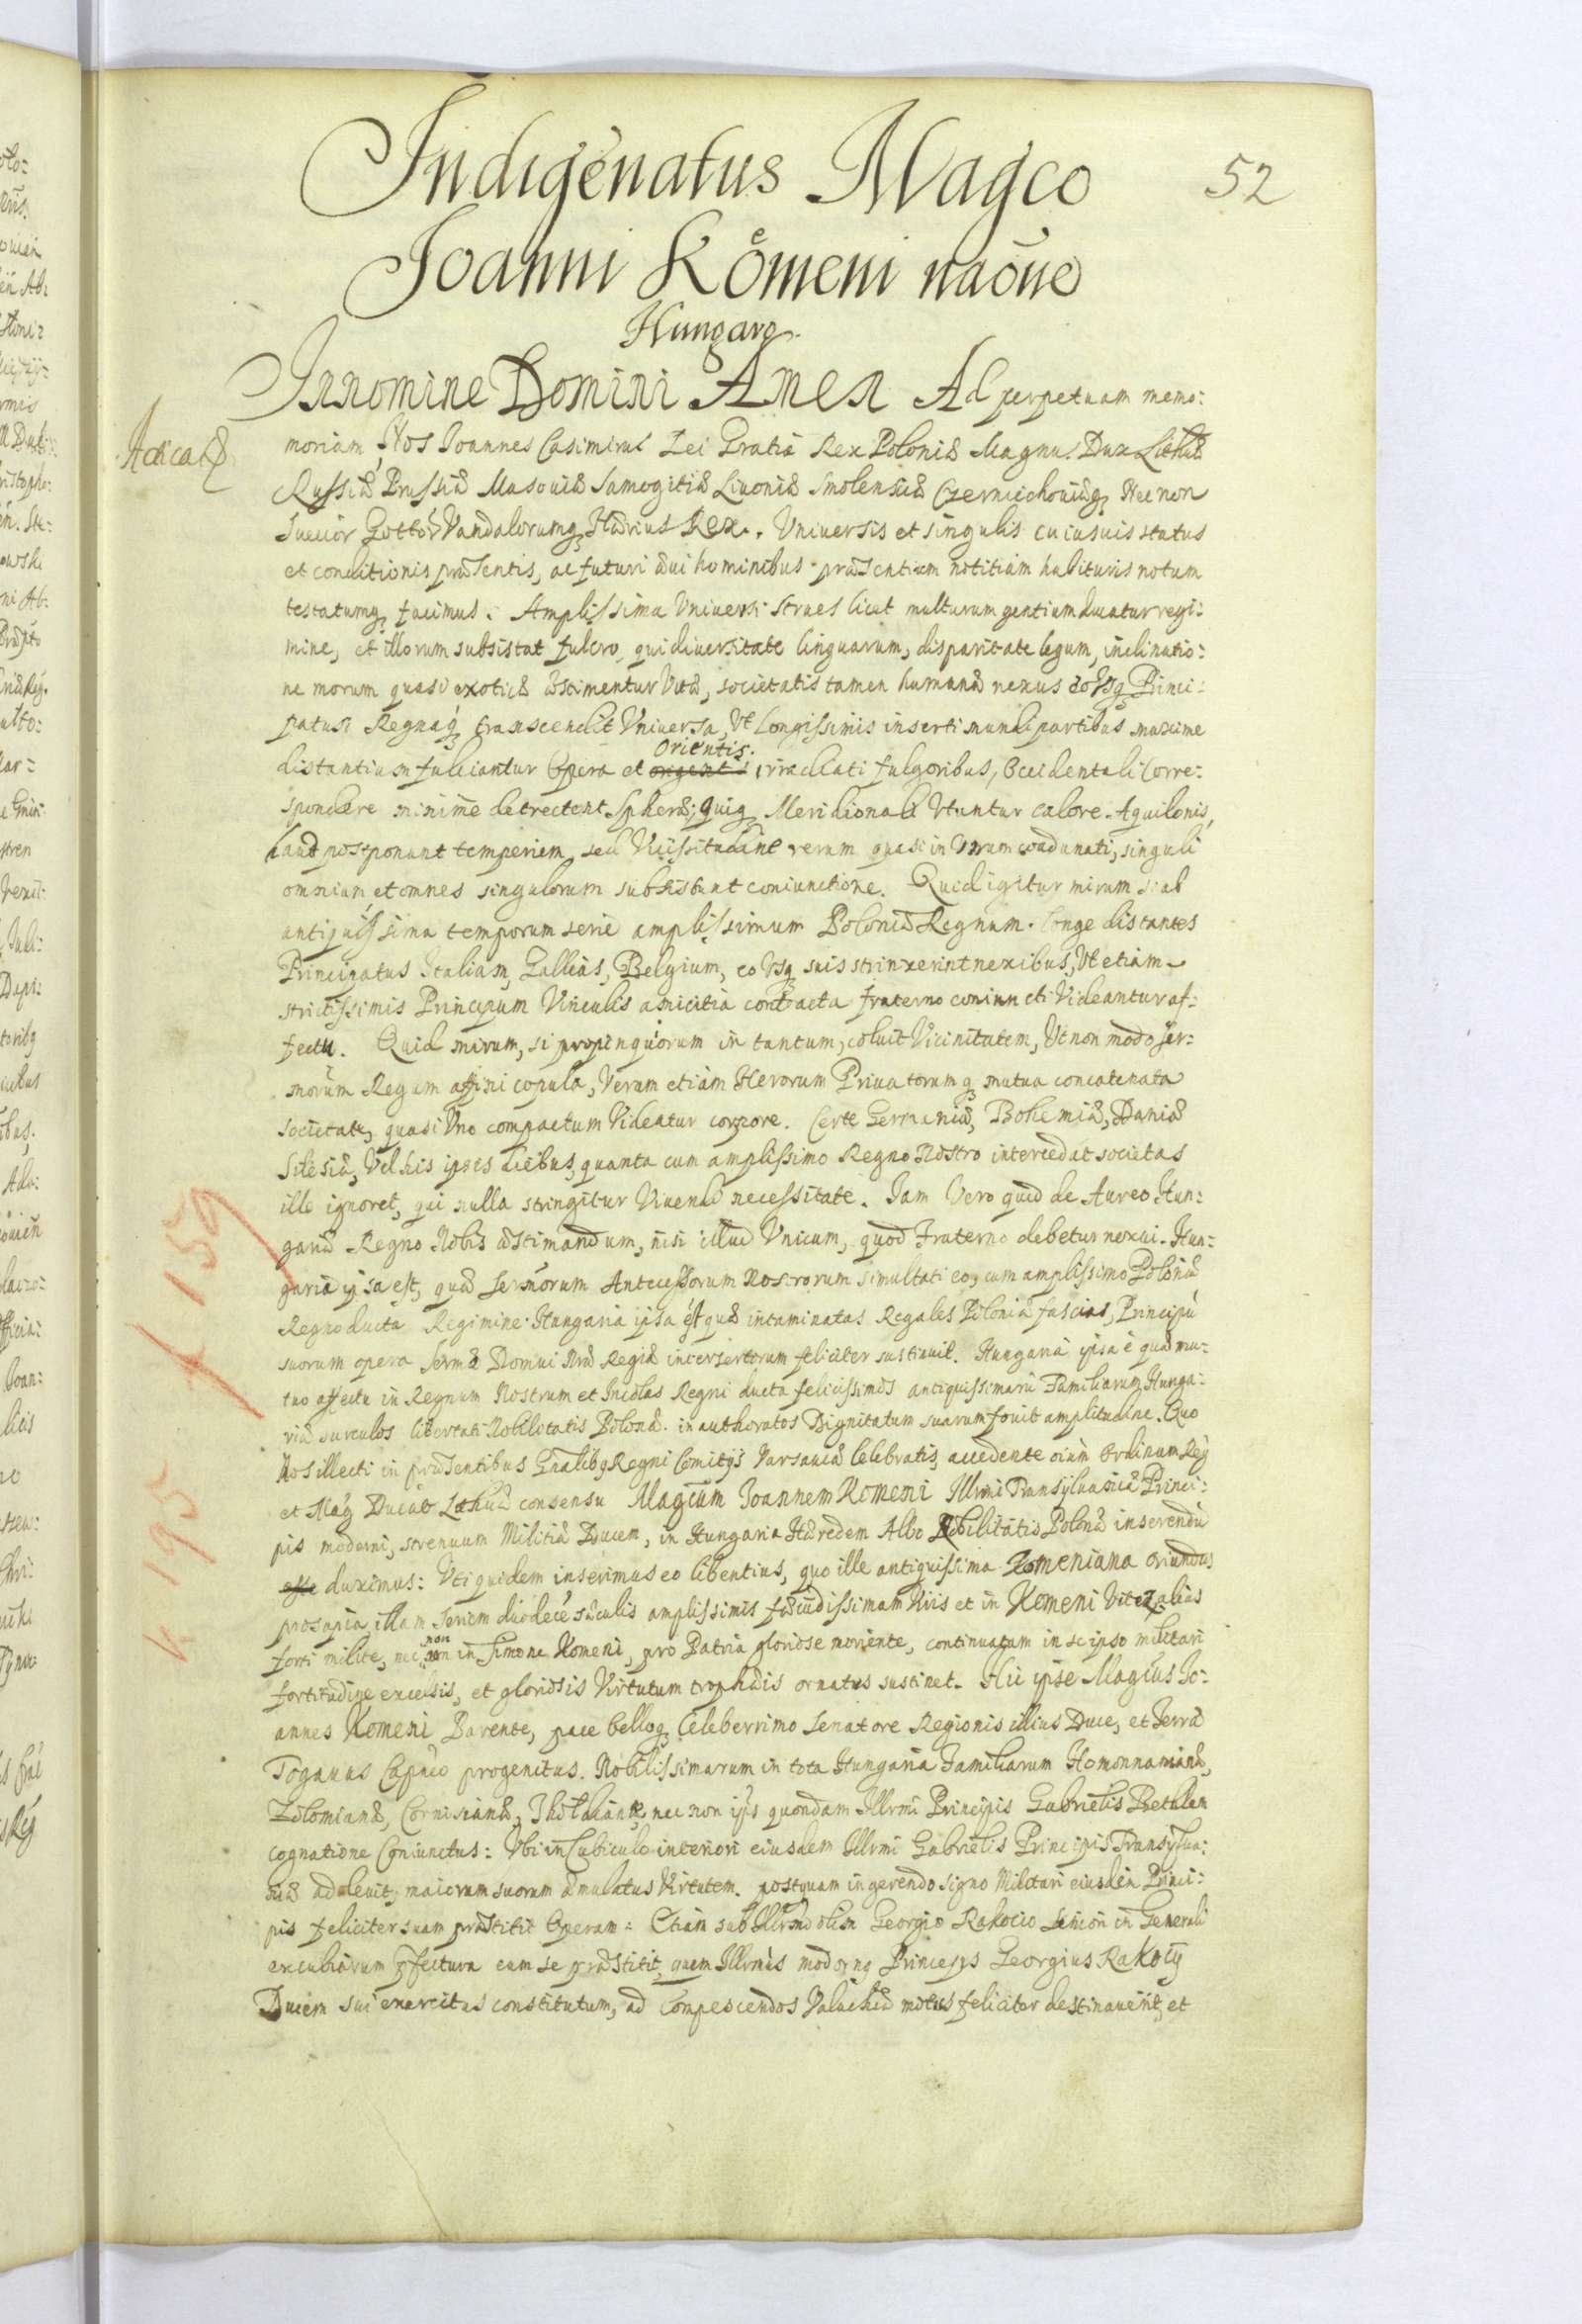 52
Indigenatus Magco
Joanni Kőmeni naõne
Hungaro.
In nomine Domini Amen Ad perpetuam memo:
moriam, Nos Joannes Casimirus Dei Gratia Rex Poloniæ Magnus Dux Lithuæ
Russiæ Prussiæ Masouiæ Samogitiæ Liuoniæ Smolensciæ Czerniechouiæq Nec non
Suecor Gottor Vandalorumq Hæreditarius Rex. Vniuersis et singulis cuiusuis status
et conditionis præsentis, ac futuri æui hominibus præsentium notitiam habituris notum
testatumq facimus. Amplissima Vniuersi strues licet multarum gentium ducatur regi:
mine, et illorum subsistat fulcro, qui diuersitate linguarum, disparitate legum, inclinatio:
ne morum quasi exoticæ æstimentur Vitæ, societatis tamen humanæ nexus eo Vsq Princi:
patus Regnaq transcendit Vniuersa, Vt longissimis inserti mundi partibus maxime
distantium fulciantur Opera et Orientis. irradiati fulgoribus, Occidentali Corre:
spondere minime detrectent Spheræ; quiq Meridionali Vtuntur calore. Aquilonis,
haud postponunt temperiem, sed Vicissitudine rerum quasi in Vnum coadunati, singuli
omnium et omnes singulorum subsistunt coniunctione. Quid igitur mirum si ab
antiquissima temporum serie amplissimum Poloniæ Regnum. longe distantes
Principatus Italiam, Gallias, Belgium, eo Vsq suis strinxerint nexibus, Vt etiam
strictissimis Principum Vinculis amicitia contracta fraterno coniuncti Videantur af:
fectu. Quid mirum, si propinquorum in tantum, coluit Vicinitatem, Vt non modo Ser:
morum Regum affini copula, Verum etiam Heroum Priuatorumq mutua concatenata
societate, quasi Vno compactum Videatur corpore. Certe Germaniæ, Bohemiæ, Daniæ
Silesiæ, Vel his ipsis diebus, quanta cum amplissimo Regno Nostro intercedat societas
ille ignoret, qui nulla stringitur Viuendi necessitate. Jam Vero quid de Aureo Hun:
gariæ Regno Nobis æstimandum, nisi illud Vnicum, quod Fraterno debetur nexui. Hun:
garia ipsa est, quæ Sermorum Antecessorum Nostrorum simultati eo, cum amplissimo Poloniæ
Regno ducta Regimine. Hungaria ipsa est quæ intaminatas Regales Poloniæ fascias, Principu
suorum opera Sermæ Domui Nræ Regiæ feliciter sustinuit. Hungaria ipsa e quæ mu:
tuo affectu in Regnum Nostrum et Incolas Regni ducta felicissimos antiquissimaru Familiarum Hunga:
riæ surculos libertati Nobilitatis Polonæ. in authoratos Dignitatum suarum fouit amplitudine. Quo
Nos illecti in præsentibus Gnalibq Regni Comitijs Varsauiæ Celebratis, accedente oium Ordinum Reg
et Mag Ducat Lithuæ consensu Magcum Joannem Komeni Illrmi Transyluaniæ Princi:
pis moderni, strenuum Militiæ Ducem, in Hungaria Hæredem Albo Nobilitatis Polonæ inserendu
duximus: Vti quidem inserimus eo libentius, quo ille antiquissima Komeniana oriundus
prosapia, illam Seriem duodece sæculis amplissimis fæcudissimam Viris et in Komeni Vitez alias
forti milite, nec non in Simone Komeni, pro Patria gloriose moriente, continuatam in se ipso militari
fortitudine excelsis, et gloriosis Virtutum trophæis ornatus sustinet. Hic ipse Magcus Jo:
annes Komeni Parente, pace belloq Celeberrimo Senatore Regionis illius Duce, et Terræ
Toganas Capneo progenitus. Nobilissimarum in tota Hungaria Familiarum Homonnamianæ,
Zolomianæ, Cornisianæ, nec non ipsis quondam Illrmi Principis Gabrielis Bethlen
cognatione Coniunctus: Vbi in Cubiculo interiori eiusdem Illrmi Gabrielis Principis Transylua:
niæ adoleuit, maiorum suorum æmulatus Virtutem. postquam in gerendo signo Militari eiusdem Princi:
pis feliciter suam præstitit Operam: Etiam sub Illrmo olim Georgio Rakocio Seniori in Generali
excubiarum præfectura eum se præstitit, quem Illrmus modernq Princeps Georgius Rakocy
Ducem sui exercitus constitutum, ad Compescendos Valachiæ motus feliciter destinauerit, et
K 195 f 159